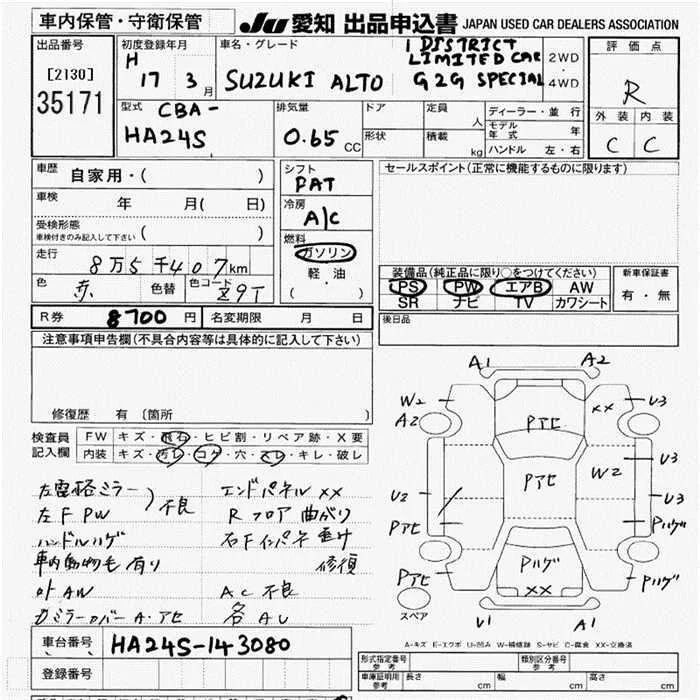 車内保管・守衛保管
JU 愛知 出品申込書 JAPAN USED CAR DEALERS ASSOCIATION
出品番号
[2130]
35171
初度登録年月
H
17 3 月
車名・グレード
SUZUKI ALTO
1 DISTRICT
LIMITED CAR
G2G SPECIAL
2WD
・
4WD
評価点
R
外装 内装
C C
型式
CBA-
HA24S
排気量
0.65 CC
ドア
定員
人
形状
積載
kg
ディーラー・並行
モデル年式 年
ハンドル 左・右
車歴
自家用・( )
車検
年 月( 日)
受検形態
車検付きのみ記入して下さい ( )
走行
8万5千407km
色
赤
色替
色コード
Z9T
シフト
PAT
冷房
A/C
燃料
ガソリン
軽・油
( )
セールスポイント(正常に機能するものに限ります)
装備品(純正品に限り○をつけてください)
PS PW エアB AW
SR ナビ TV カワシート
新車保証書
有・無
R券 8700 円
名変期限 月 日
後日品
注意事項申告欄(不具合内容等は具体的に記入して下さい)
修復歴 有 〔箇所 〕
検査員
記入欄
FW キズ・飛石・ヒビ割・リペア跡・X要
内装 キズ・汚レ・コゲ・穴・スレ・キレ・破レ
左電格ミラー
左F PW
不良
ハンドルハゲ
車内動物毛有り
外AW
カミラーカバーA・アセ
エンドパネルXX
Rフロア曲がり
右Fインパネ
修復
AC不良
各AU
A1 A2
W2
A2
Pアセ
XX
U3
Pアセ
W2
U3
U2
U3
Pアセ
Pハゲ
Pハゲ
XX
Pアセ
Pハゲ
スペア
U1 A1
A-キズ E-エクボ U-凹み W-補修跡 S-サビ C-腐食 XX-交換済
車台番号
HA24S-143080
登録番号
形式指定番号
参考
類別区分番号
参考
車庫証明用
参考
長さ cm
幅 cm
高さ cm